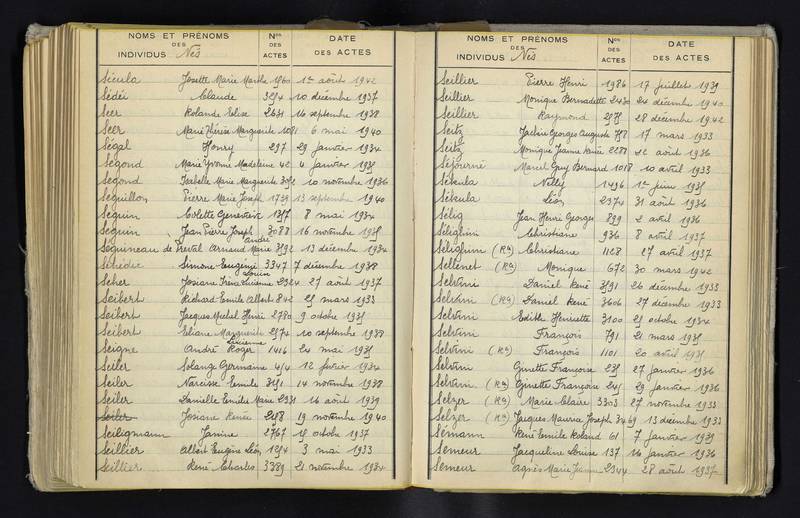 NOMS ET PRÉNOMS DES INDIVIDUS Nés Nos DES ACTES DATE DES ACTES
Sécula Josette Marie Marthe 1960 1er août 1942
Sédéi Claude 10 décembre 1937
Seer Rolande Elise 2631 16 septembre 1938
Seer Marie Thérèse Marguerite 1081 6 mai 1940
Ségal Henry 297 29 janvier 1934
Ségond Marie Yvonne Madeleine 42 4 janvier 1935
Segond Isabelle Marie Marguerite 10 novembre 1936
Seguillon Pierre Marie Joseph 1759 13 septembre 1940
Seguin Colette Geneviève 8 mai 1934
Seguin Jean Pierre Joseph 3088 16 novembre 1935
André
Séguineau de Préval Arnaud Marie 13 décembre 1934
Séhédic Simone Eugénie 3347 7 décembre 1938
Louise
Seher Josiane Irène Lucienne 2324 27 août 1937
Seibert Richard Emile Albert 842 25 mars 1933
Seibert Jacques Michel Henri 2780 9 octobre 1935
Seibert Eliane Marguerite 2574 10 septembre 1938
Lucienne
Seigne André Roger 1416 24 mai 1935
Seiler Solange Germaine 12 février 1934
Seiler Narcisse Emile 14 novembre 1938
Seiler Danielle Emilie Marie 2331 16 août 1939
Seiler Josiane Renée 19 novembre 1940
Seiligmann Janine 2767 15 octobre 1937
Seillier Albert Eugène Léon 1254 3 mai 1933
Seillier René Charles 3389 21 novembre 1934
NOMS ET PRÉNOMS DES INDIVIDUS Nés Nos DES ACTES DATE DES ACTES
Seillier Pierre Henri 1986 17 juillet 1939
Seillier Monique Bernadette 2430 24 décembre 1940
Seillier Raymond 28 décembre 1942
Seitz Jackie Georges Auguste 17 mars 1933
Seitz Monique Jeanne Renée 2281 12 août 1936
Séjourné Marcel Guy Bernard 1018 10 avril 1933
Sékula Nelly 1496 1er juin 1935
Sékula Léon 2374 31 août 1936
Sélig Jean Henri Georges 899 2 avril 1936
Séligham Christiane 936 8 avril 1937
Séligham (Ro) Christiane 1128 27 avril 1937
Sellenet (Ro) Monique 672 30 mars 1942
Selvini Daniel René 3591 26 décembre 1933
Selvini (Ro) Daniel René 3606 27 décembre 1933
Selvini Edith Henriette 3100 25 octobre 1934
Selvini François 791 21 mars 1935
Selvini (Ro) François 1101 20 avril 1935
Selvini Ginette Françoise 235 27 janvier 1936
Selvini (Ro) Ginette Françoise 245 29 janvier 1936
Selzer (Ro) Marie Claire 3303 27 novembre 1933
Selzer (Ro) Jacques Maurice Joseph 3469 13 décembre 1933
Sémann René Emile Roland 61 7 janvier 1939
Semeur Jacqueline Louise 137 16 janvier 1936
Semeur Agnès Marie Jeanne 2344 28 août 1937